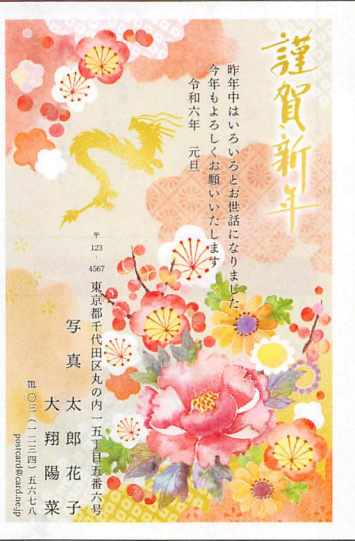 謹賀新年
昨年中はいろいろとお世話になりました
今年もよろしくお願いいたします
令和六年 元旦
〒123-4567 東京都千代田区丸の内一五丁目五番六号
写真 太郎花子
大翔陽菜
℡〇三(一二三四)五六七八
postcard@card.ne.jp